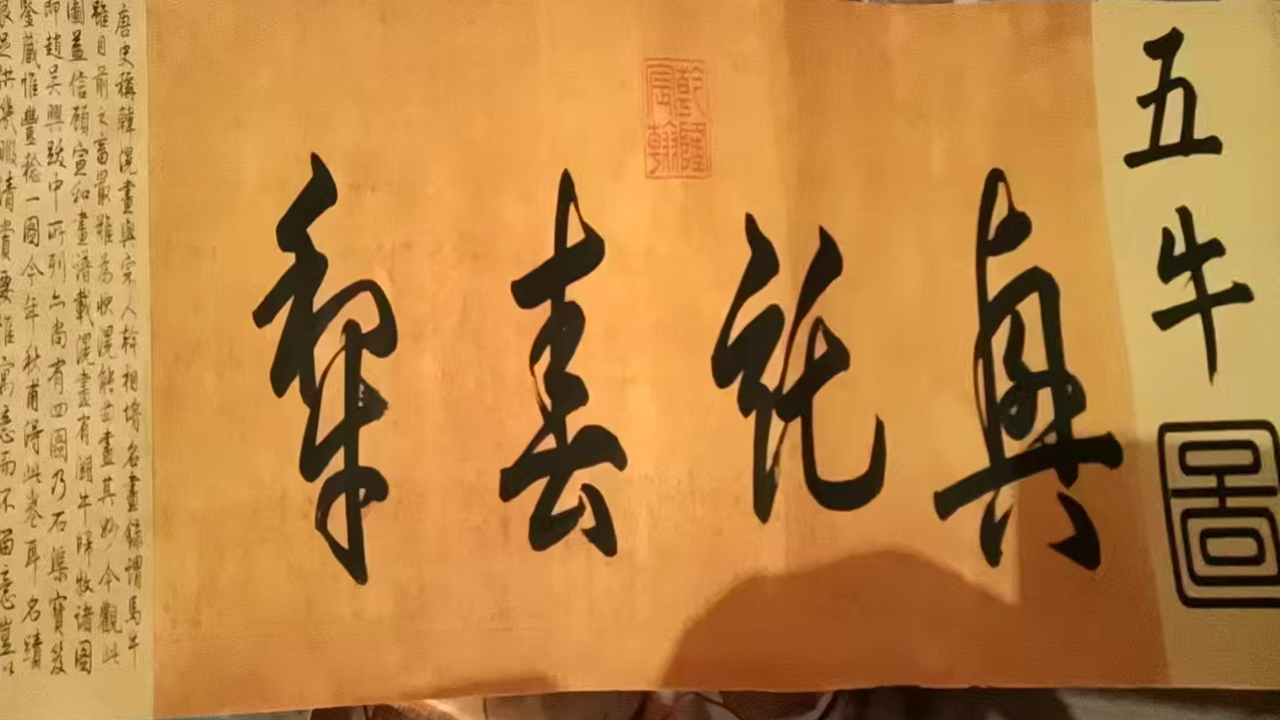 五牛圖
興託春犂
乾隆宸翰
唐史稱韓滉畫與宗人幹相埒名畫錄謂馬牛
雖目前之畜最難為狀滉能曲盡其妙今觀此
圖益信顧宣和畫譜載滉畫有鬬牛歸牧諸圖
即趙吳興跋中所列亦尚有四圖乃石渠寶笈
鑒藏惟豐稔一圖今年秋甫得此卷耳名蹟
良足供幾暇清賞要惟寓意而不留意豈以